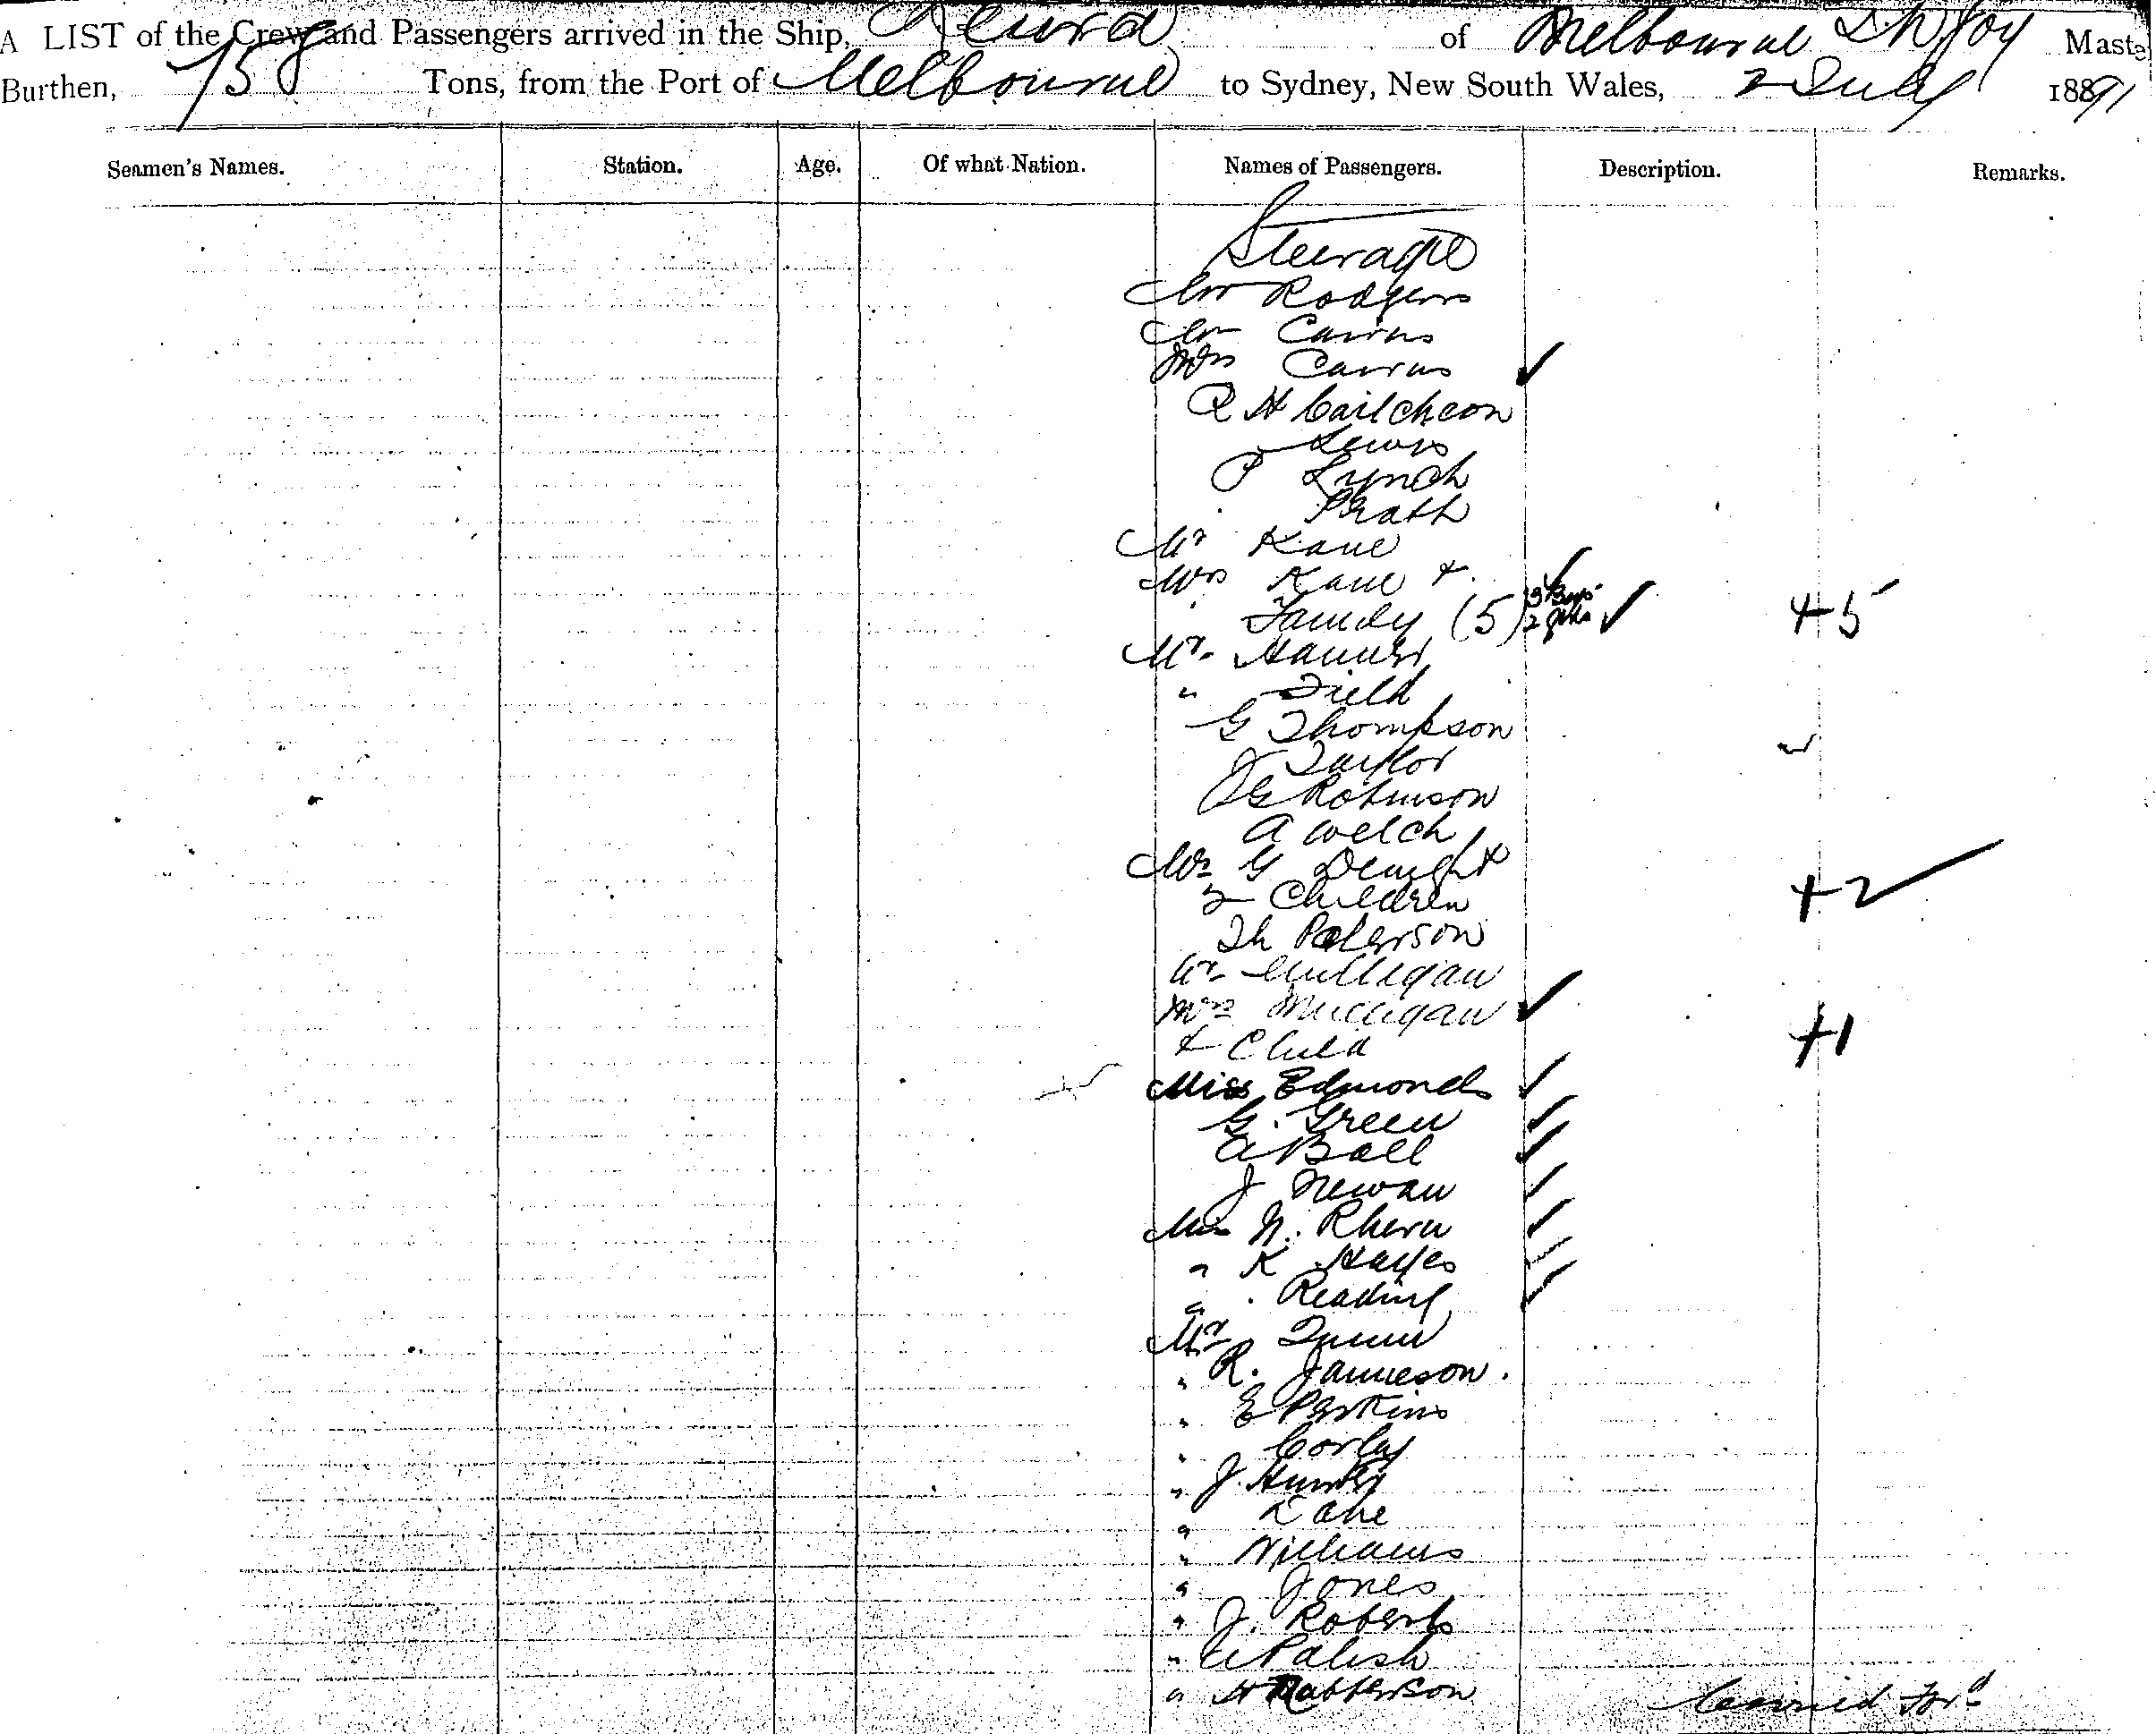 A LIST of the Crew and Passengers arrived in the Ship, of Melbourne Maste
Burthen, 758 Tons, from the Port of Melbourne to Sydney, New South Wales, 2 July 1891
Seamen's Names. Station. Age. Of what Nation. Names of Passengers. Description. Remarks.
Steerage
Mr Rodgers
Mr Cairns
Mrs Cairns ✓
R H
Lewis
P Lynch
Mr Kane
Mrs Kane + ✓
Family (5) 3 Boys 2 girls ✓ +5
Mr
" Field
G Thompson
J Taylor
J G Robinson
A Welch
G
2 Children +2
Th Paterson
Mr Mulligan
Mrs Mulligan ✓
+ Child +1
Miss Edmonds ✓
G. Green ✓
A Ball ✓
J Newan ✓
N. ✓
" K Hayes ✓
" Reading ✓
Mr Quinn
" R. Jamieson.
" E Perkins
" Corley
" J. Hunter
" Lane
" Williams
" Jones
" J. Roberts
" Palish
" H Patterson
Carried Ford